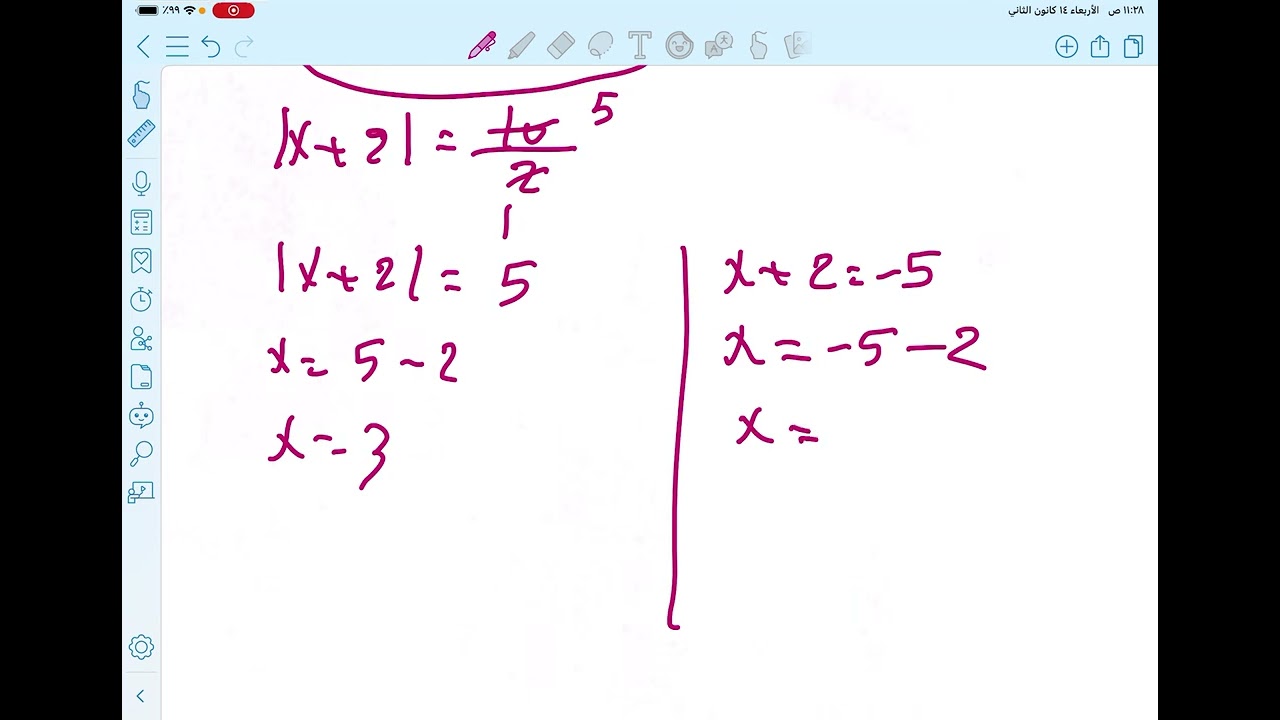 ٪٩٩ ١١:٢٨ ص الأربعاء ١٤ كانون الثاني
|x+2| = 10/2 5
1
|x+2| = 5
x = 5-2
x = 3
x+2=-5
x = -5-2
x =